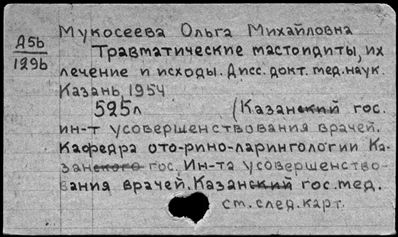 Мукосеева Ольга Михайловна
Д5b
129b
Травматические мастоидиты, их
лечение и исходы. Дисс. докт. мед. наук.
Казань, 1954
525л (Казанский гос.
ин-т усовершенствования врачей.
Кафедра ото-рино-ларингологии Ка-
занского гос. Ин-та усовершенство-
вания врачей. Казанский гос. мед.
см. след. карт.